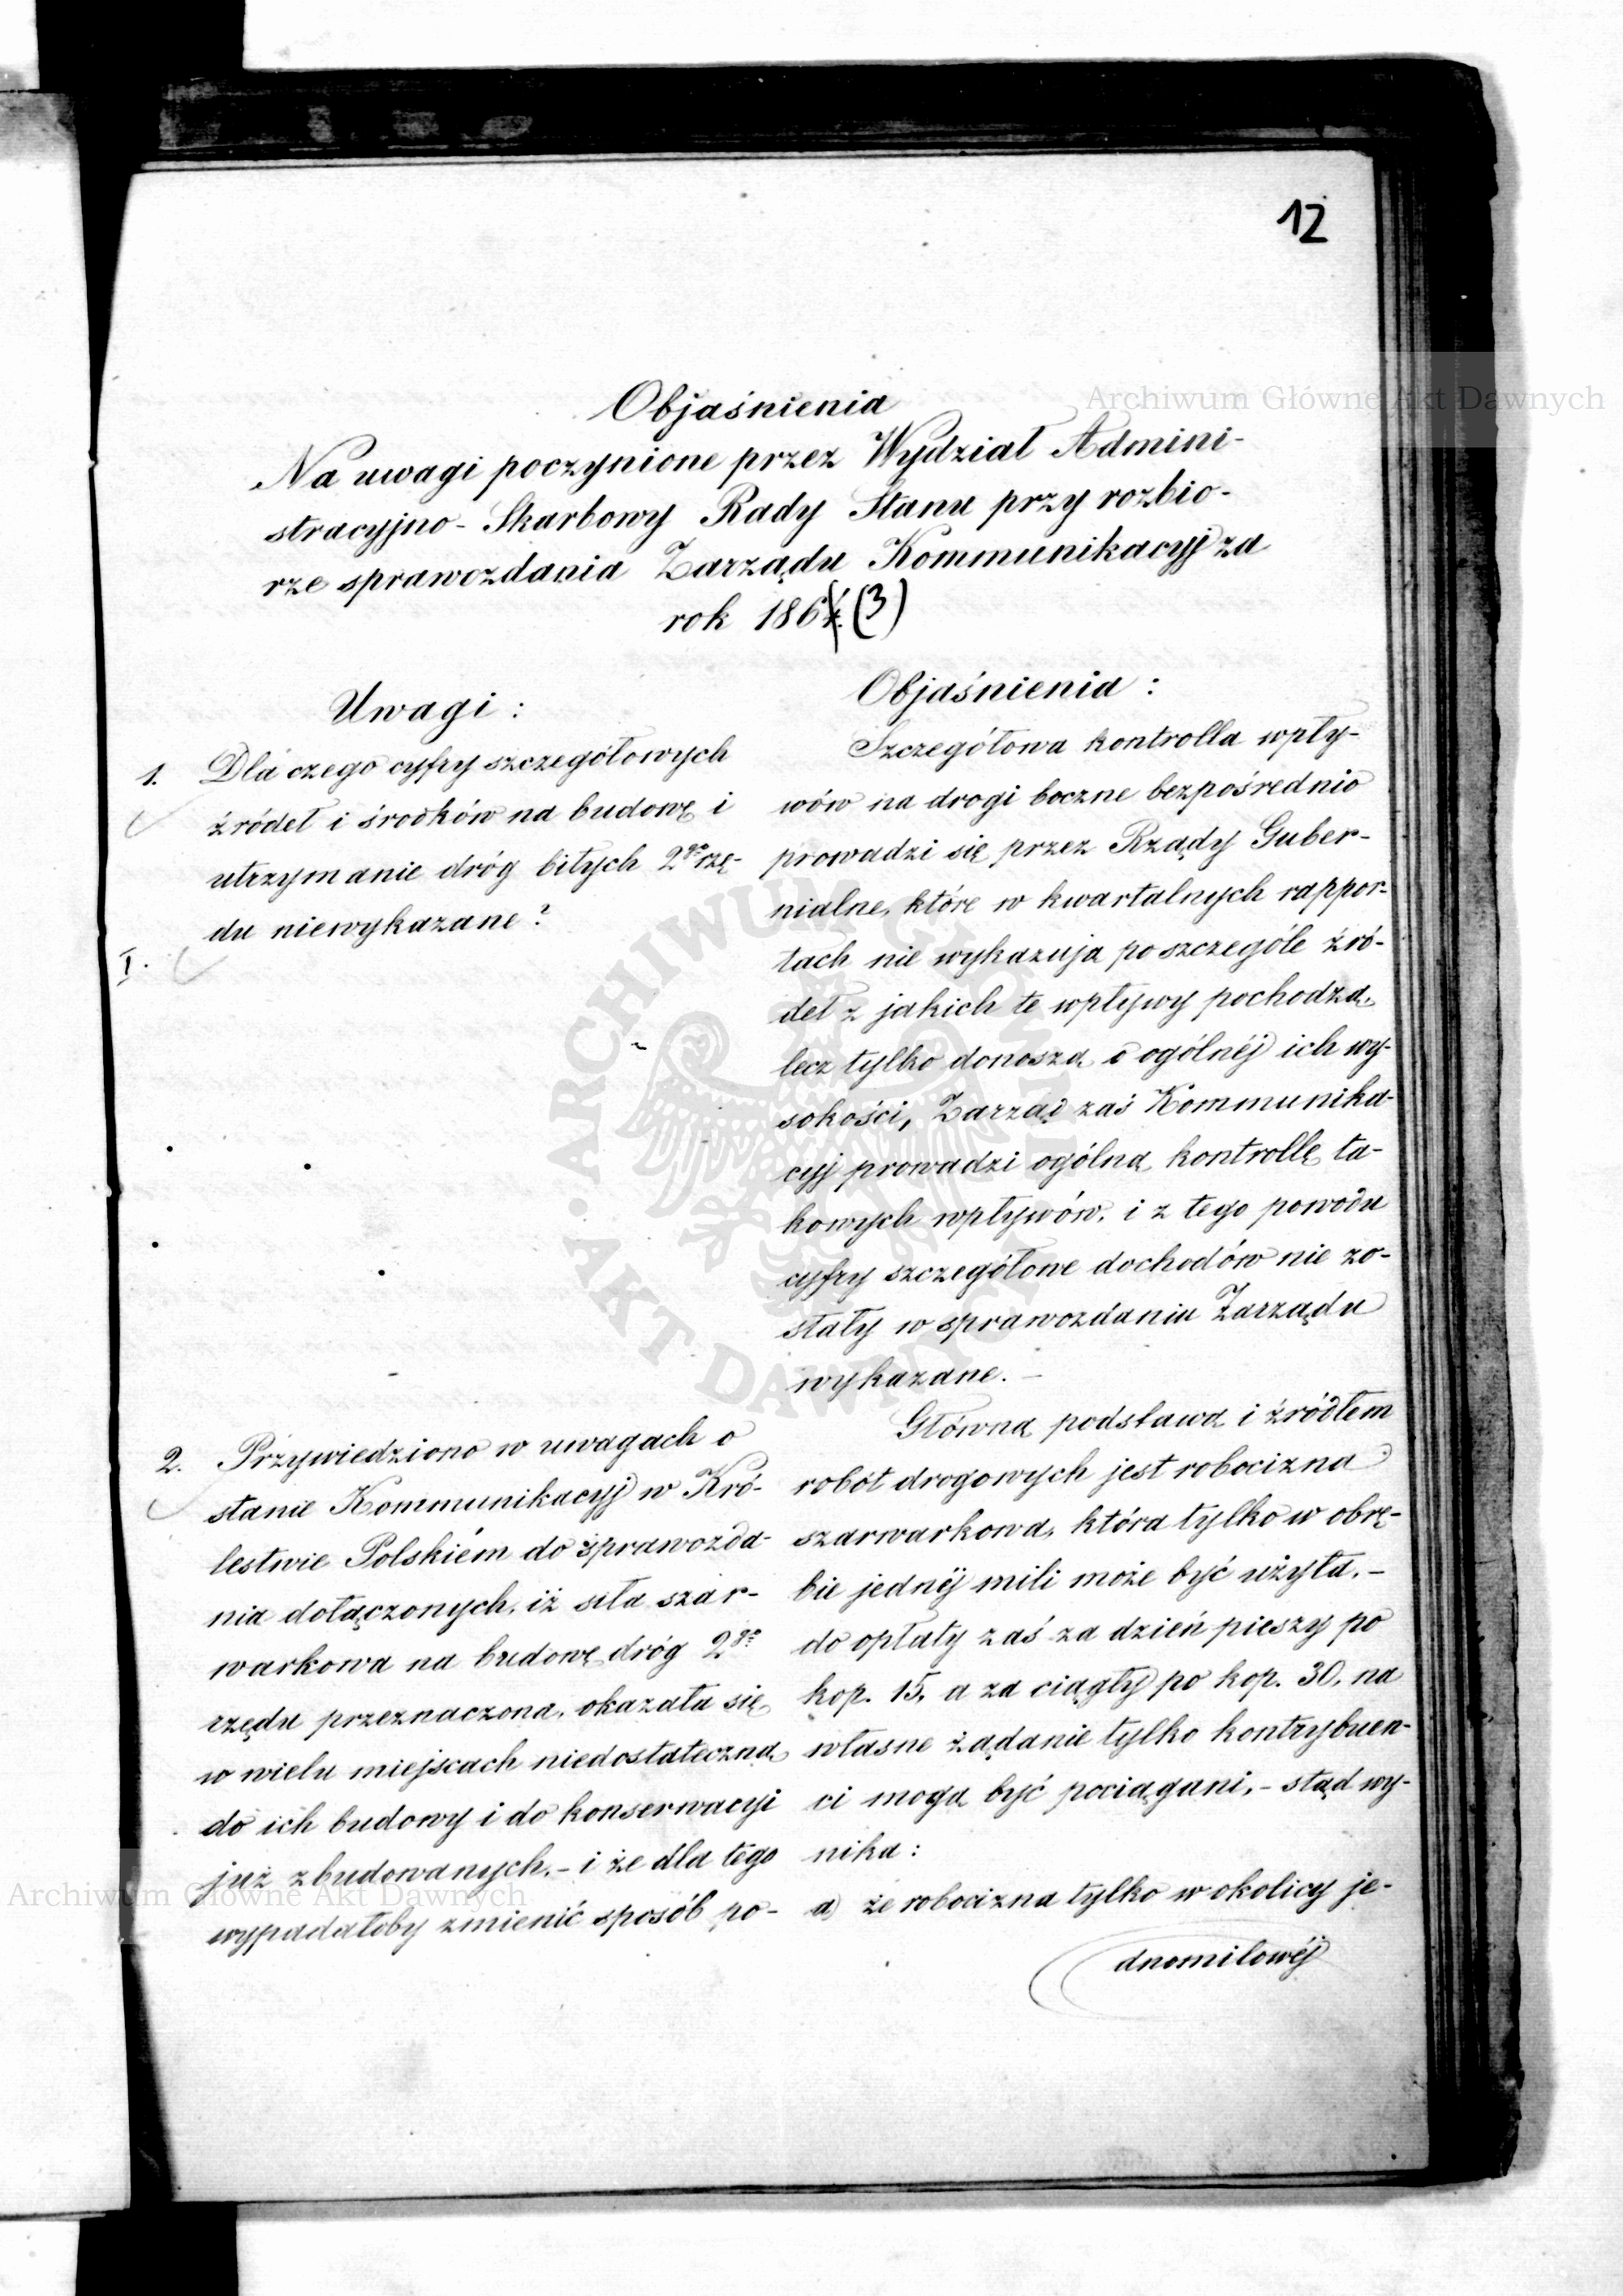 12
Objaśnienia
Na uwagi poczynione przez Wydział Admini-
stracyjno-Skarbowy Rady Stanu przy rozbio-
rze sprawozdania Zarządu Kommunikacyj za
rok 186 (3)
Uwagi:
1. Dla czego cyfry szczegółowych
źródeł i środków na budowę i
utrzymanie dróg bitych 2go rzę-
du niewykazane?
I.
Objaśnienia:
Szczegółowa kontrolla wpły-
wów na drogi boczne bezpośrednio
prowadzi się przez Rządy Guber-
nialne, które w kwartalnych rappor-
tach nie wykazują po szczególe źró-
deł z jakich te wpływy pochodzą,
lecz tylko donoszą o ogólnéj ich wy-
sokości, Zarząd zaś Kommunika-
cyj prowadzi ogólną kontrollę ta-
kowych wpływów, i z tego powodu
cyfry szczegółowe dochodów nie zo-
stały w sprawozdaniu Zarządu
wykazane.-
2. Przywiedziono w uwagach o
stanie Kommunikacyj w Kró-
lestwie Polskiém do sprawozda-
nia dołączonych, iż siła szar-
warkowa na budowę dróg 2go
rzędu przeznaczona, okazała się
w wielu miejscach niedostateczną
do ich budowy i do konserwacyi
już zbudowanych,- i że dla tego
wypadałoby zmienić sposób po-
Główną podstawą i źródłem
robót drogowych jest robocizna
szarwarkowa, która tylko w obrę-
bie jednéj mili może być użyta,-
do opłaty zaś za dzień pieszy po
kop. 15, a za ciągły po kop. 30, na
własne żądanie tylko kontrybuen-
ci mogą być pociągani,- stąd wy-
nika:
a) że robocizna tylko w okolicy je-
dnomilowéj
Archiwum Główne Akt Dawnych
Archiwum Główne Akt Dawnych
ARCHIWUM GŁÓWNE
AKT DAWNYCH